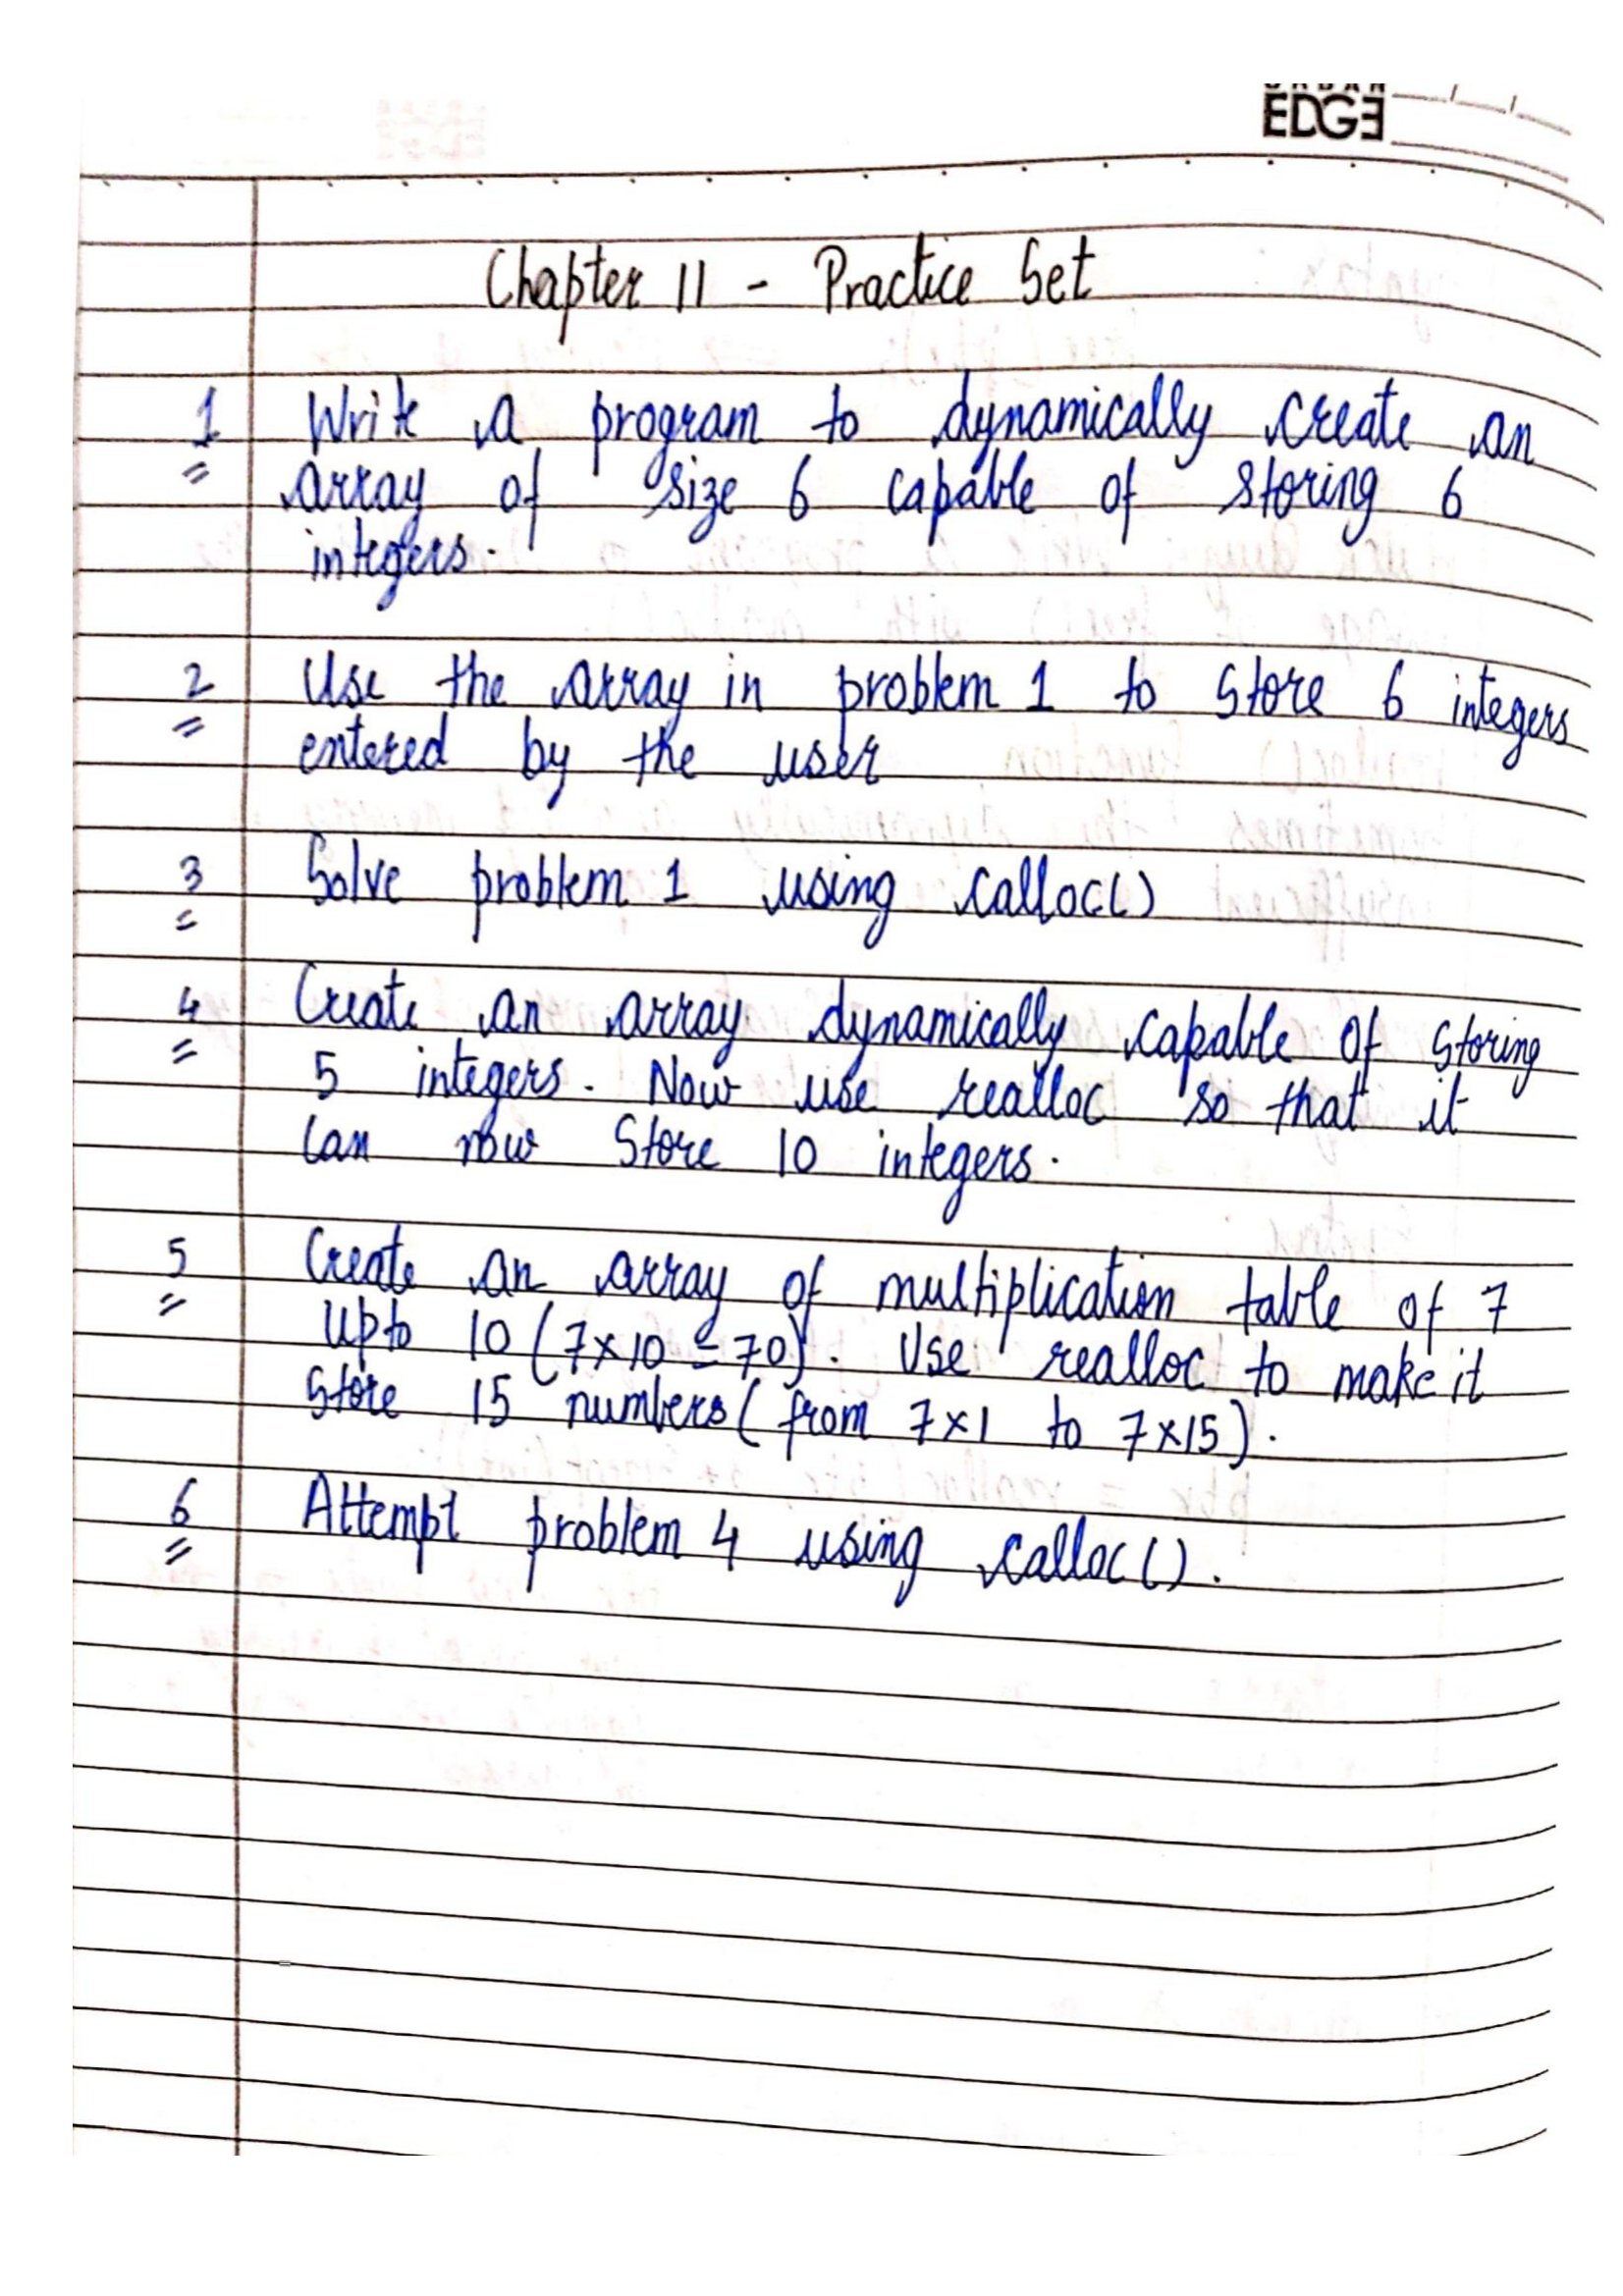 EDGE
Chapter 11 - Practice Set
1 Write a program to dynamically create an
array of size 6 capable of storing 6
integers.
2 Use the array in problem 1 to store 6 integers
entered by the user
3 Solve problem 1 using calloc()
4 Create an array dynamically capable of storing
5 integers. Now use realloc so that it
can now store 10 integers.
5 Create an array of multiplication table of 7
upto 10 (7×10 = 70). Use realloc to make it
store 15 numbers (from 7×1 to 7×15).
6 Attempt problem 4 using calloc().